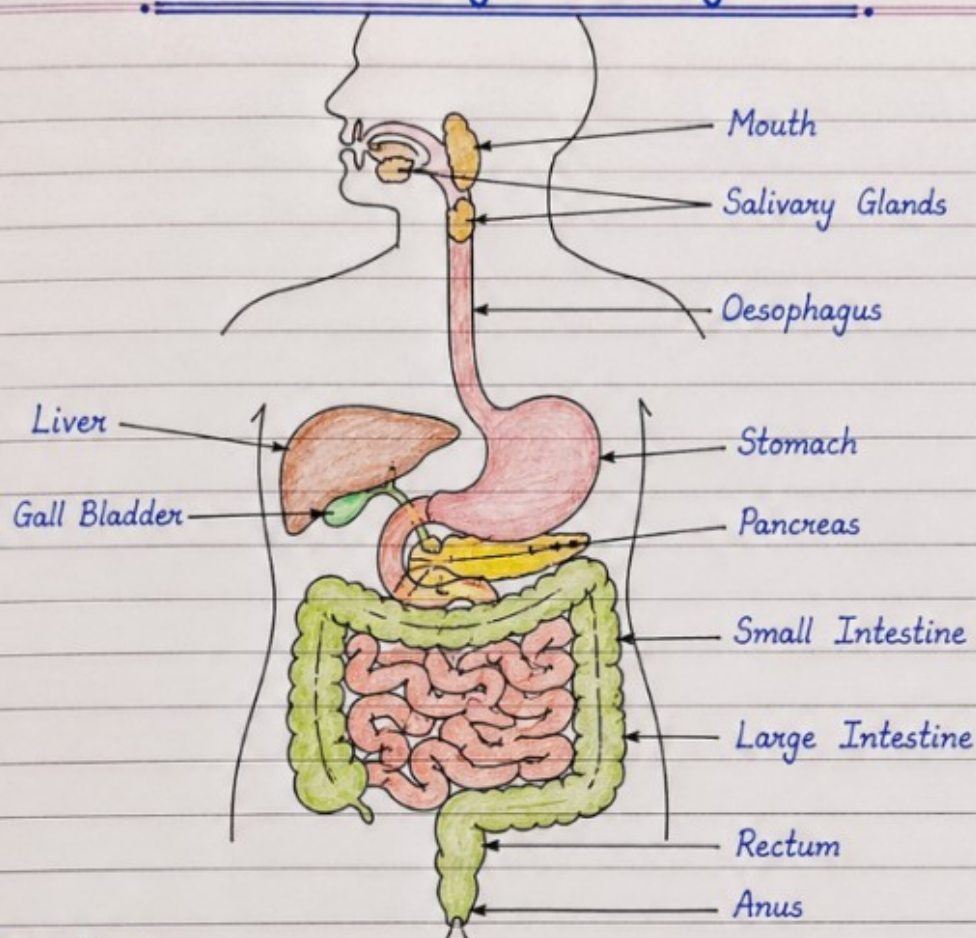 Mouth
Salivary Glands
Oesophagus
Liver
Stomach
Gall Bladder
Pancreas
Small Intestine
Large Intestine
Rectum
Anus